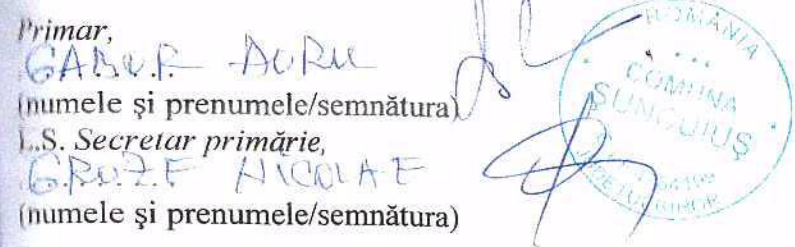 Primar,
GABOR AURU
(numele şi prenumele/semnătura)
L.S. Secretar primărie,
GROZE NICOLAE
(numele şi prenumele/semnătura)
ROMÂNIA
COMUNA
ŞUNCUIUŞ
JUDEŢUL BIHOR